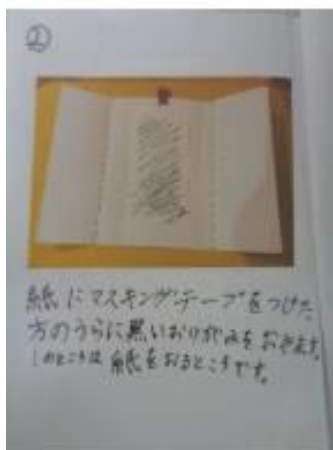 ②
紙にマスキングテープをつけた
方のうらに黒いおりがみをおきます。
のところは紙をおるところです。